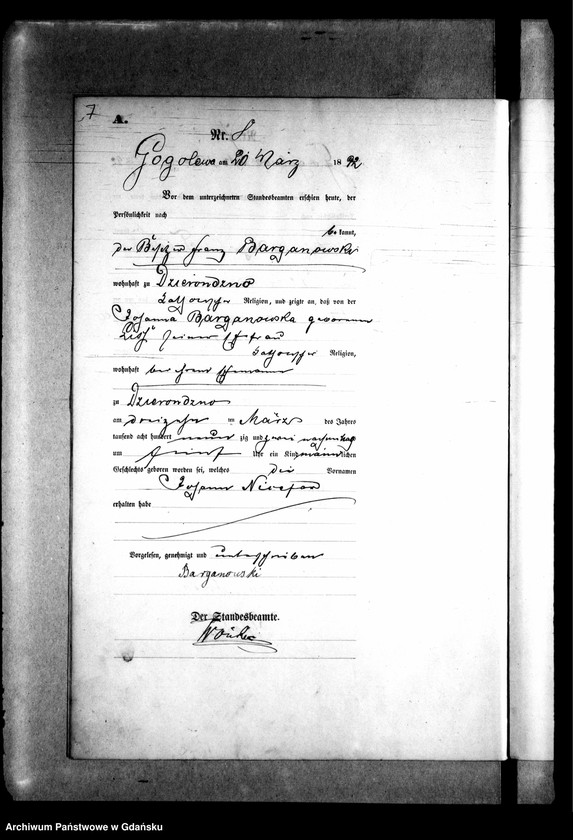 7
A.
Nr. 8
Gogolewo am 20 März 1892
Vor dem unterzeichneten Standesbeamten erschien heute, der
Persönlichkeit nach
bekannt,
der Besitzer Franz Barganowski
wohnhaft zu Dzierondzno
katholischer Religion, und zeigte an, daß von der
Johanna Barganowska geborenen
seiner Ehefrau
katholischer Religion,
wohnhaft bei ihrem Ehemanne
zu Dzierondzno
am dreizehn ten März des Jahres
tausend acht hundert neun zig und zwei nachmittags
um fünf Uhr ein Kind männlichen
Geschlechts geboren worden sei, welches die Vornamen
Johann
erhalten habe
Vorgelesen, genehmigt und unterschrieben
Barganowski
Der Standesbeamte.
Archiwum Państwowe w Gdańsku